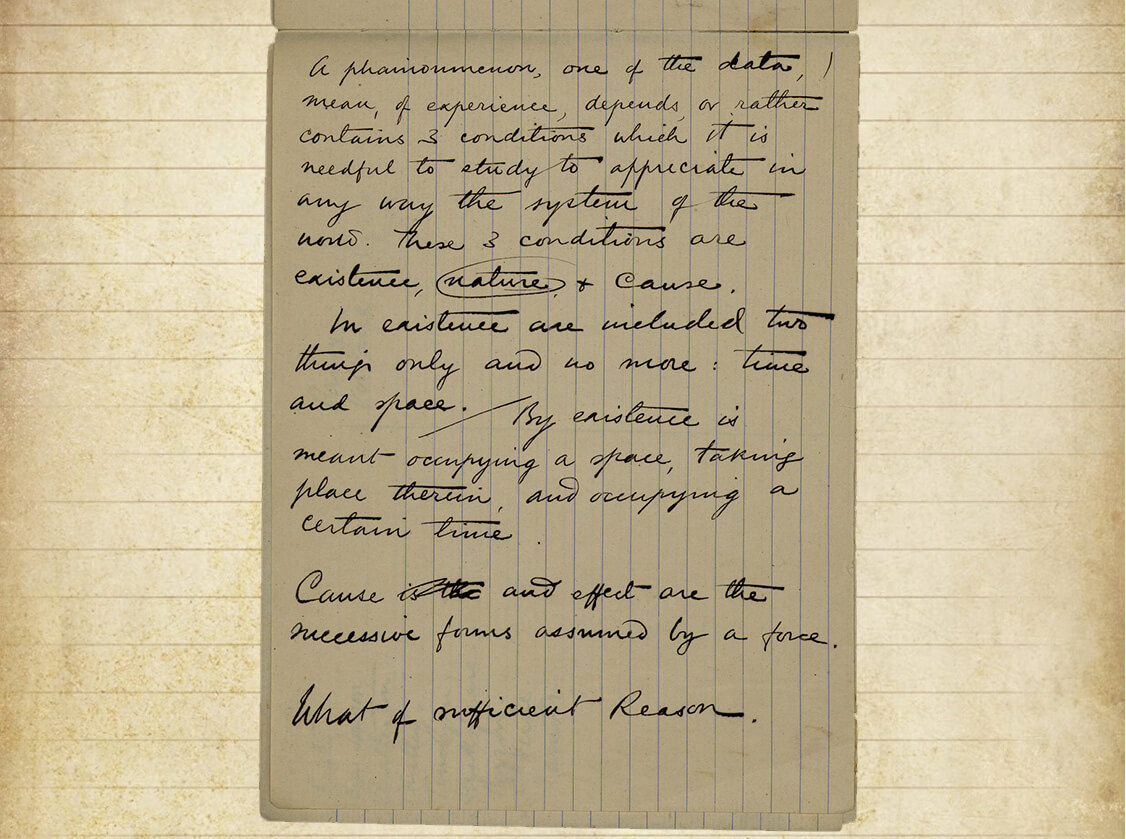 A phainoumenon, one of the data, I
mean, of experience, depends, or rather
contains 3 conditions which it is
needful to study to appreciate in
any way the system of the
world. These 3 conditions are
existence, nature, + Cause.
In existence are included two
things only and no more: time
and space. / By existence is
meant occupying a space, taking
place therein, and occupying a
certain time.
Cause is the and effect are the
successive forms assumed by a force.
What of sufficient Reason.